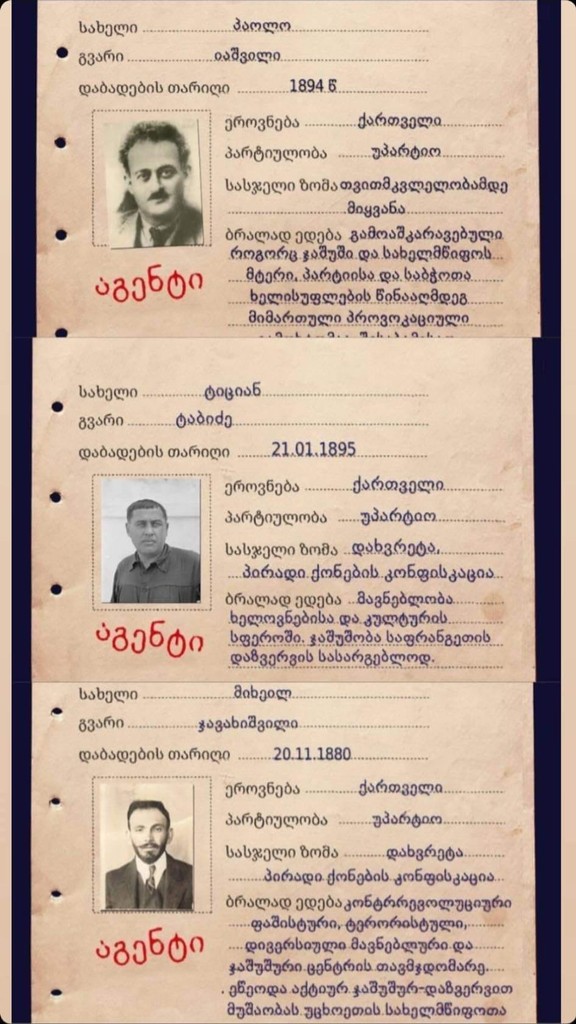 სახელი პაოლო
გვარი იაშვილი
დაბადების თარიღი 1894 წ
ეროვნება ქართველი
პარტიულობა უპარტიო
სასჯელი ზომა თვითმკვლელობამდე
მიყვანა
ბრალად ედება გამოაშკარავებული
როგორც ჯაშუში და სახელმწიფოს
მტერი, პარტიისა და საბჭოთა
ხელისუფლების წინააღმდეგ
მიმართული პროვოკაციული
აგენტი
სახელი ტიციან
გვარი ტაბიძე
დაბადების თარიღი 21.01.1895
ეროვნება ქართველი
პარტიულობა უპარტიო
სასჯელი ზომა დახვრეტა,
პირადი ქონების კონფისკაცია
ბრალად ედება მავნებლობა
ხელოვნებისა და კულტურის
სფეროში. ჯაშუშობა საფრანგეთის
დაზვერვის სასარგებლოდ.
აგენტი
სახელი მიხეილ
გვარი ჯავახიშვილი
დაბადების თარიღი 20.11.1880
ეროვნება ქართველი
პარტიულობა უპარტიო
სასჯელი ზომა დახვრეტა
პირადი ქონების კონფისკაცია
ბრალად ედება კონტრრევოლუციური
ფაშისტური, ტერორისტული,
დივერსიული მავნებლური და
ჯაშუშური ცენტრის თავმჯდომარე.
ეწეოდა აქტიურ ჯაშუშურ-დაზვერვით
მუშაობას უცხოეთის სახელმწიფოთა
აგენტი